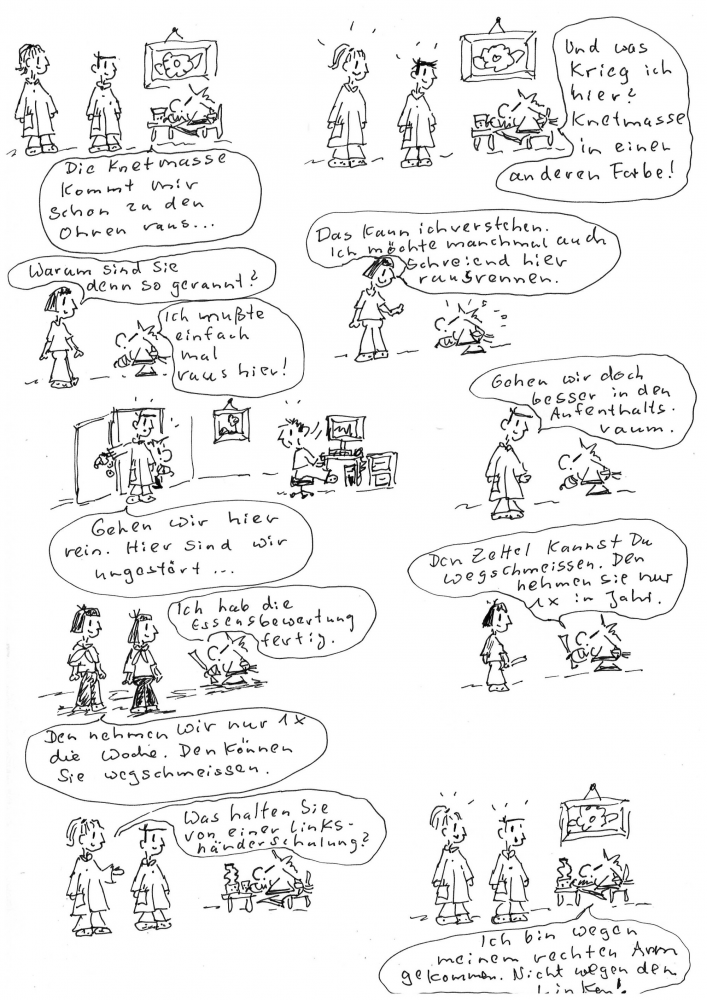 Die Knetmasse
kommt mir
schon zu den
Ohren raus...
Und was
Krieg ich
hier?
Knetmasse
in einer
anderen Farbe!
Warum sind Sie
denn so gerannt?
Ich mußte
einfach
mal
raus hier!
Das kann ich verstehen.
Ich möchte manchmal auch
schreiend hier
rausrennen.
Gehen wir hier
rein. Hier sind wir
ungestört...
Gehen wir doch
besser in den
Aufenthalts-
raum.
Ich hab die
Essensbewertung
fertig.
Den nehmen wir nur 1x
die Woche. Den können
Sie wegschmeissen.
Den Zettel kannst Du
wegschmeissen. Den
nehmen sie nur
1x in Jahr.
Was halten Sie
von einer Links-
händerschulung?
Ich bin wegen
meinem rechten Arm
gekommen. Nicht wegen dem
linken!